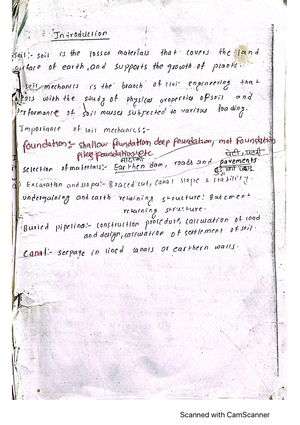 Introduction
soil:- soil is the losses materials that covers the land
surface of earth, and supports the growth of plants.
soil mechanics is the branch of civil engineering that
with the study of physical properties of soil and
performance of soil masses subjected to various loading.
Importance of soil mechanics:-
Foundation:- shallow foundation, deep foundation, mat Foundation
piles foundation etc
selection of materials:- Earthen dam, roads and pavements
Excavation and slope:- Braced cut, canal slope & stability.
undergoing and earth retaining structure: Basement
retaining structure.
Buried pipeline:- construction procedure, calculation of load
and design, calculation of settlement of soil.
Canal:- seepage in lined canals or earthern walls.
Scanned with CamScanner